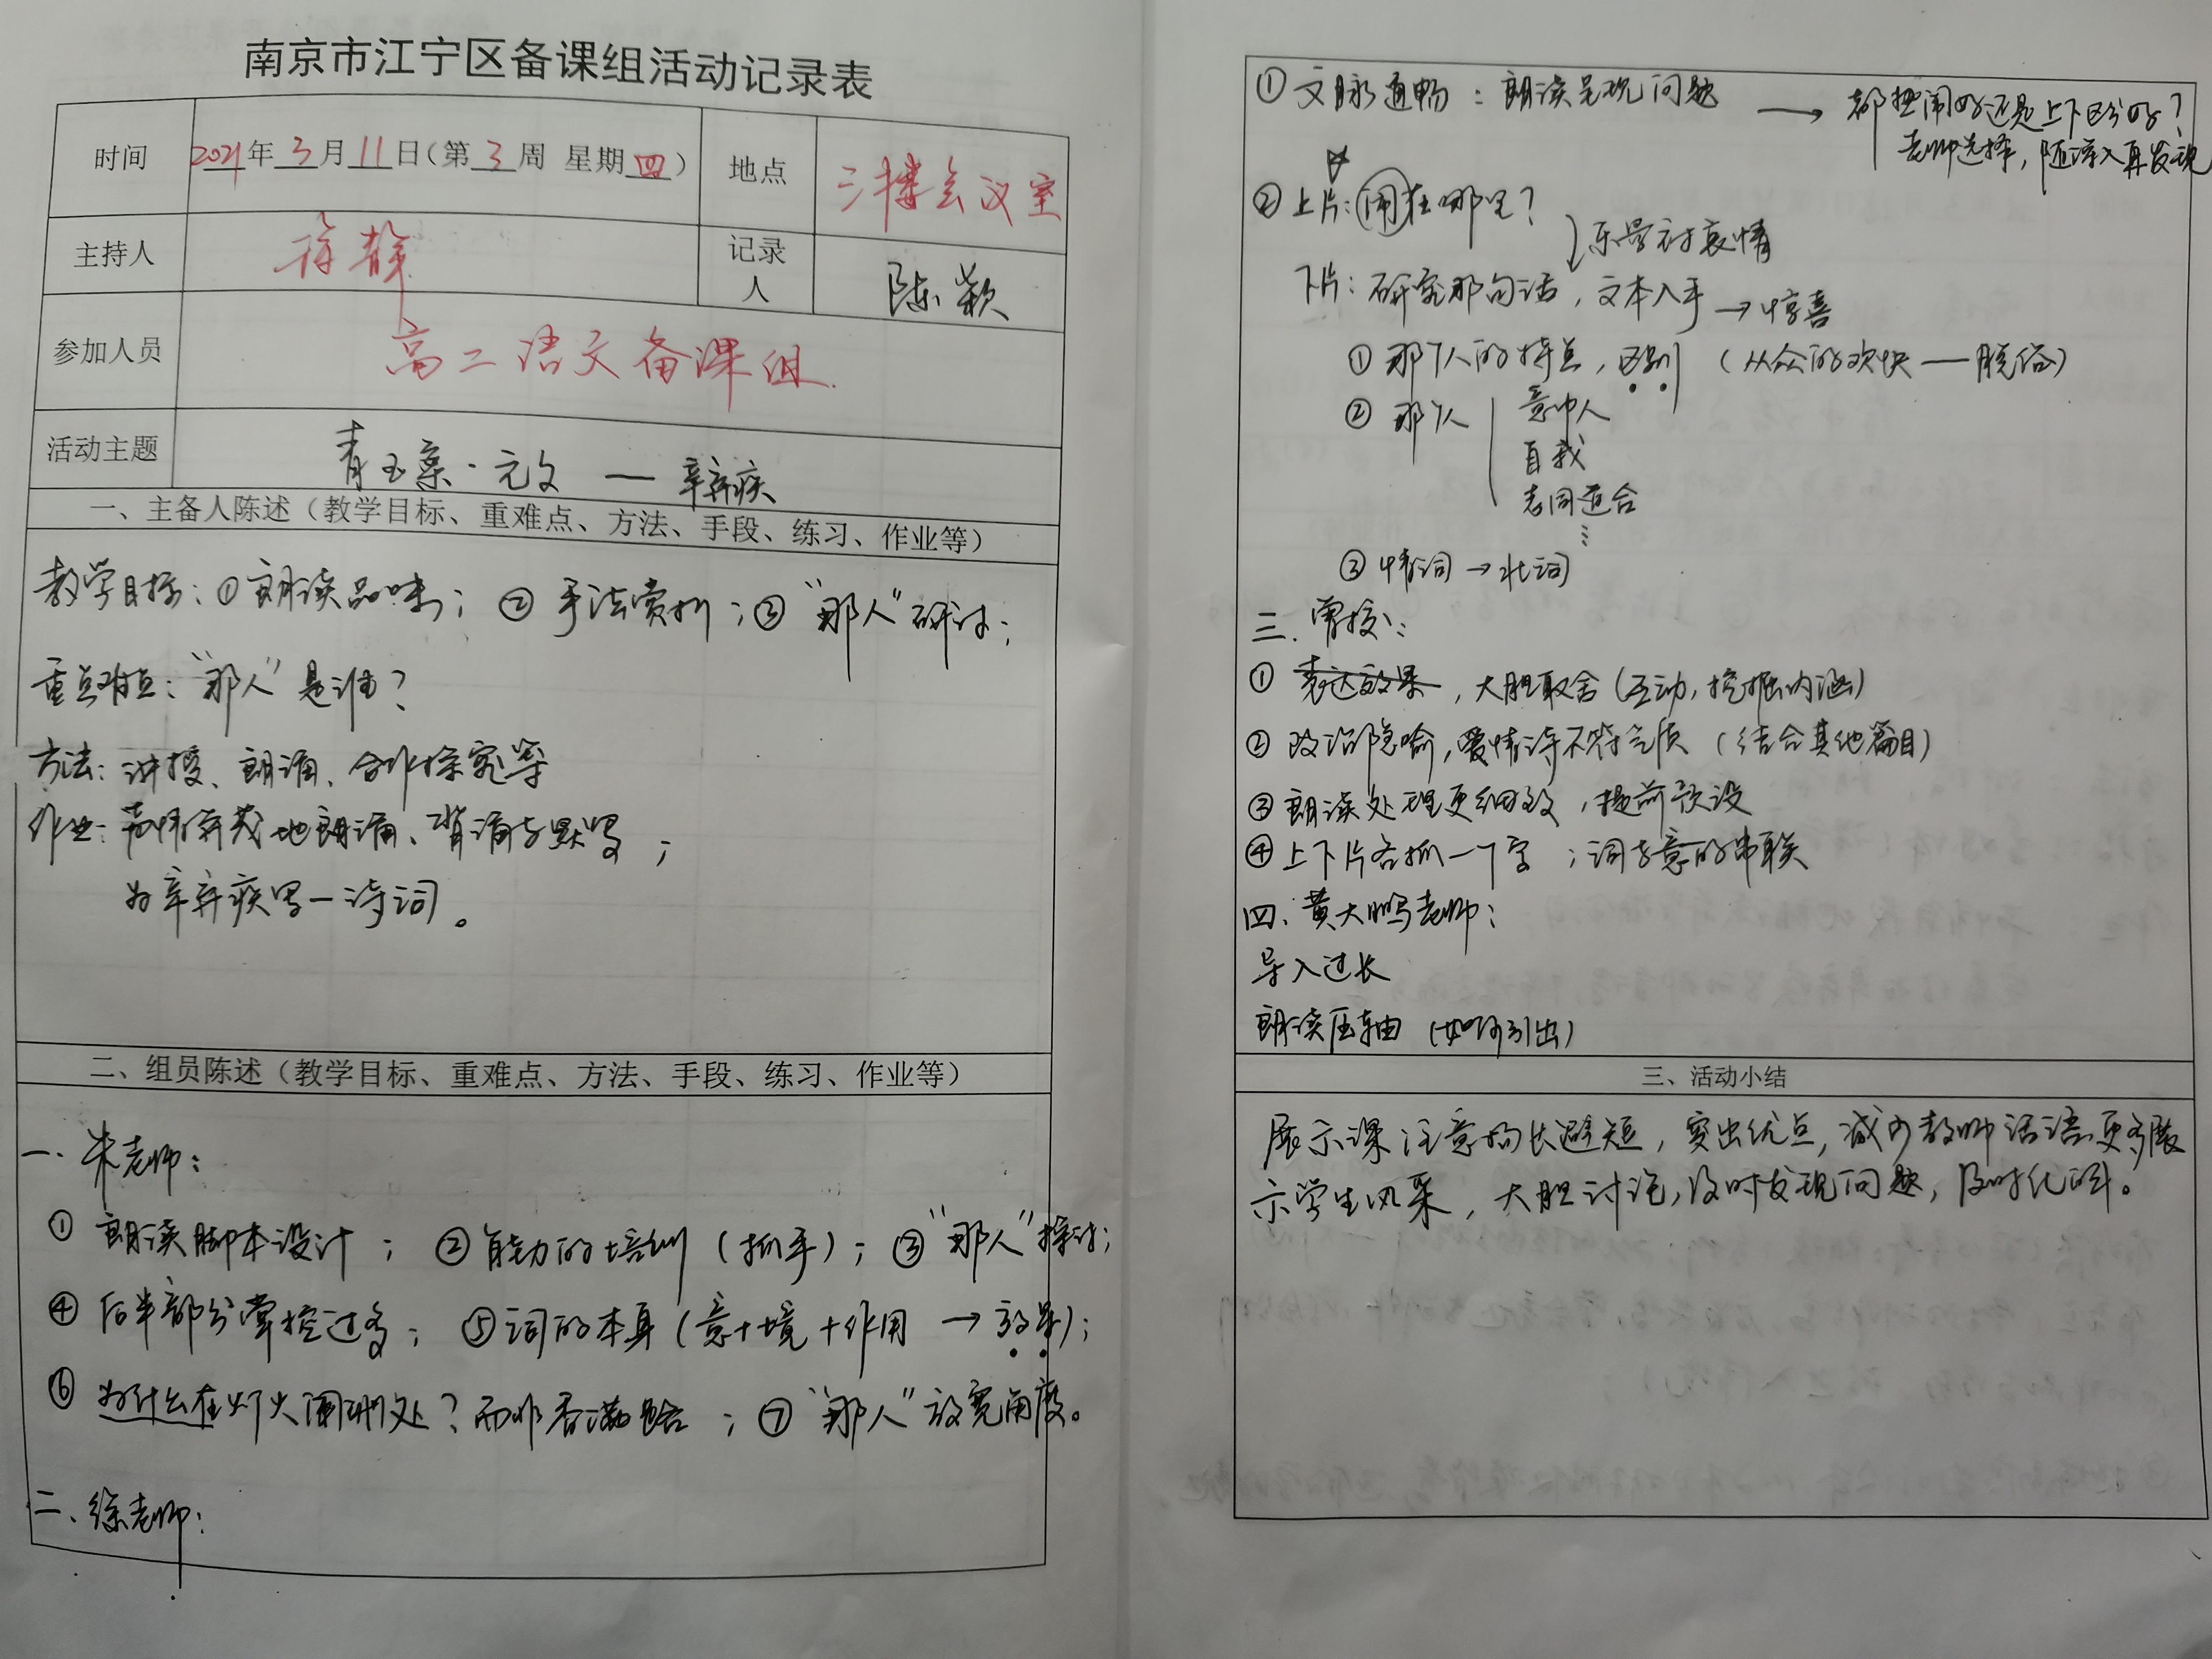 南京市江宁区备课组活动记录表
时间 2021年3月11日(第3周 星期四) 地点 三楼会议室
主持人 徐静 记录人 陈颖
参加人员 高二语文备课组
活动主题 青玉案·元夕 — 辛弃疾
一、主备人陈述(教学目标、重难点、方法、手段、练习、作业等)
教学目标:①朗读品味;②手法赏析;③“那人”研讨;
重点难点:“那人”是谁?
方法:讲授、朗诵、合作探究等
作业:声情并茂地朗诵、背诵与默写;
为辛弃疾写一诗词。
二、组员陈述(教学目标、重难点、方法、手段、练习、作业等)
一、朱老师:
① 朗读脚本设计;②能力的培训(抓手);③“那人”探讨;
④ 后半部分掌控过多;⑤词的本身(意+境+作用→效果);
⑥ 为什么在灯火阑珊处?而非香满路;⑦“那人”放宽角度。
二、徐老师:
① 文脉通畅:朗读呈现问题 → 都热闹好还是上下区分好?
老师选择,随深入再发现
② 上片:闹在哪里?
乐景衬哀情
下片:研究那句话,文本入手→惊喜
① 那个人的特点,区别(从众的欢快——脱俗)
② 那个人 意中人
自我
志同道合
⋮
③ 情词→壮词
三、曹校:
① 表达效果,大胆取舍(互动,挖掘内涵)
② 政治隐喻,爱情诗不符气质(结合其他篇目)
③ 朗读处理更细致,提前预设
④ 上下片各抓一个字;词与意的串联
四、黄大鹏老师:
导入过长
朗读压轴(如何引出)
三、活动小结
展示课注意扬长避短,突出优点,减少教师话语更多展
示学生风采,大胆讨论,及时发现问题,及时化解。